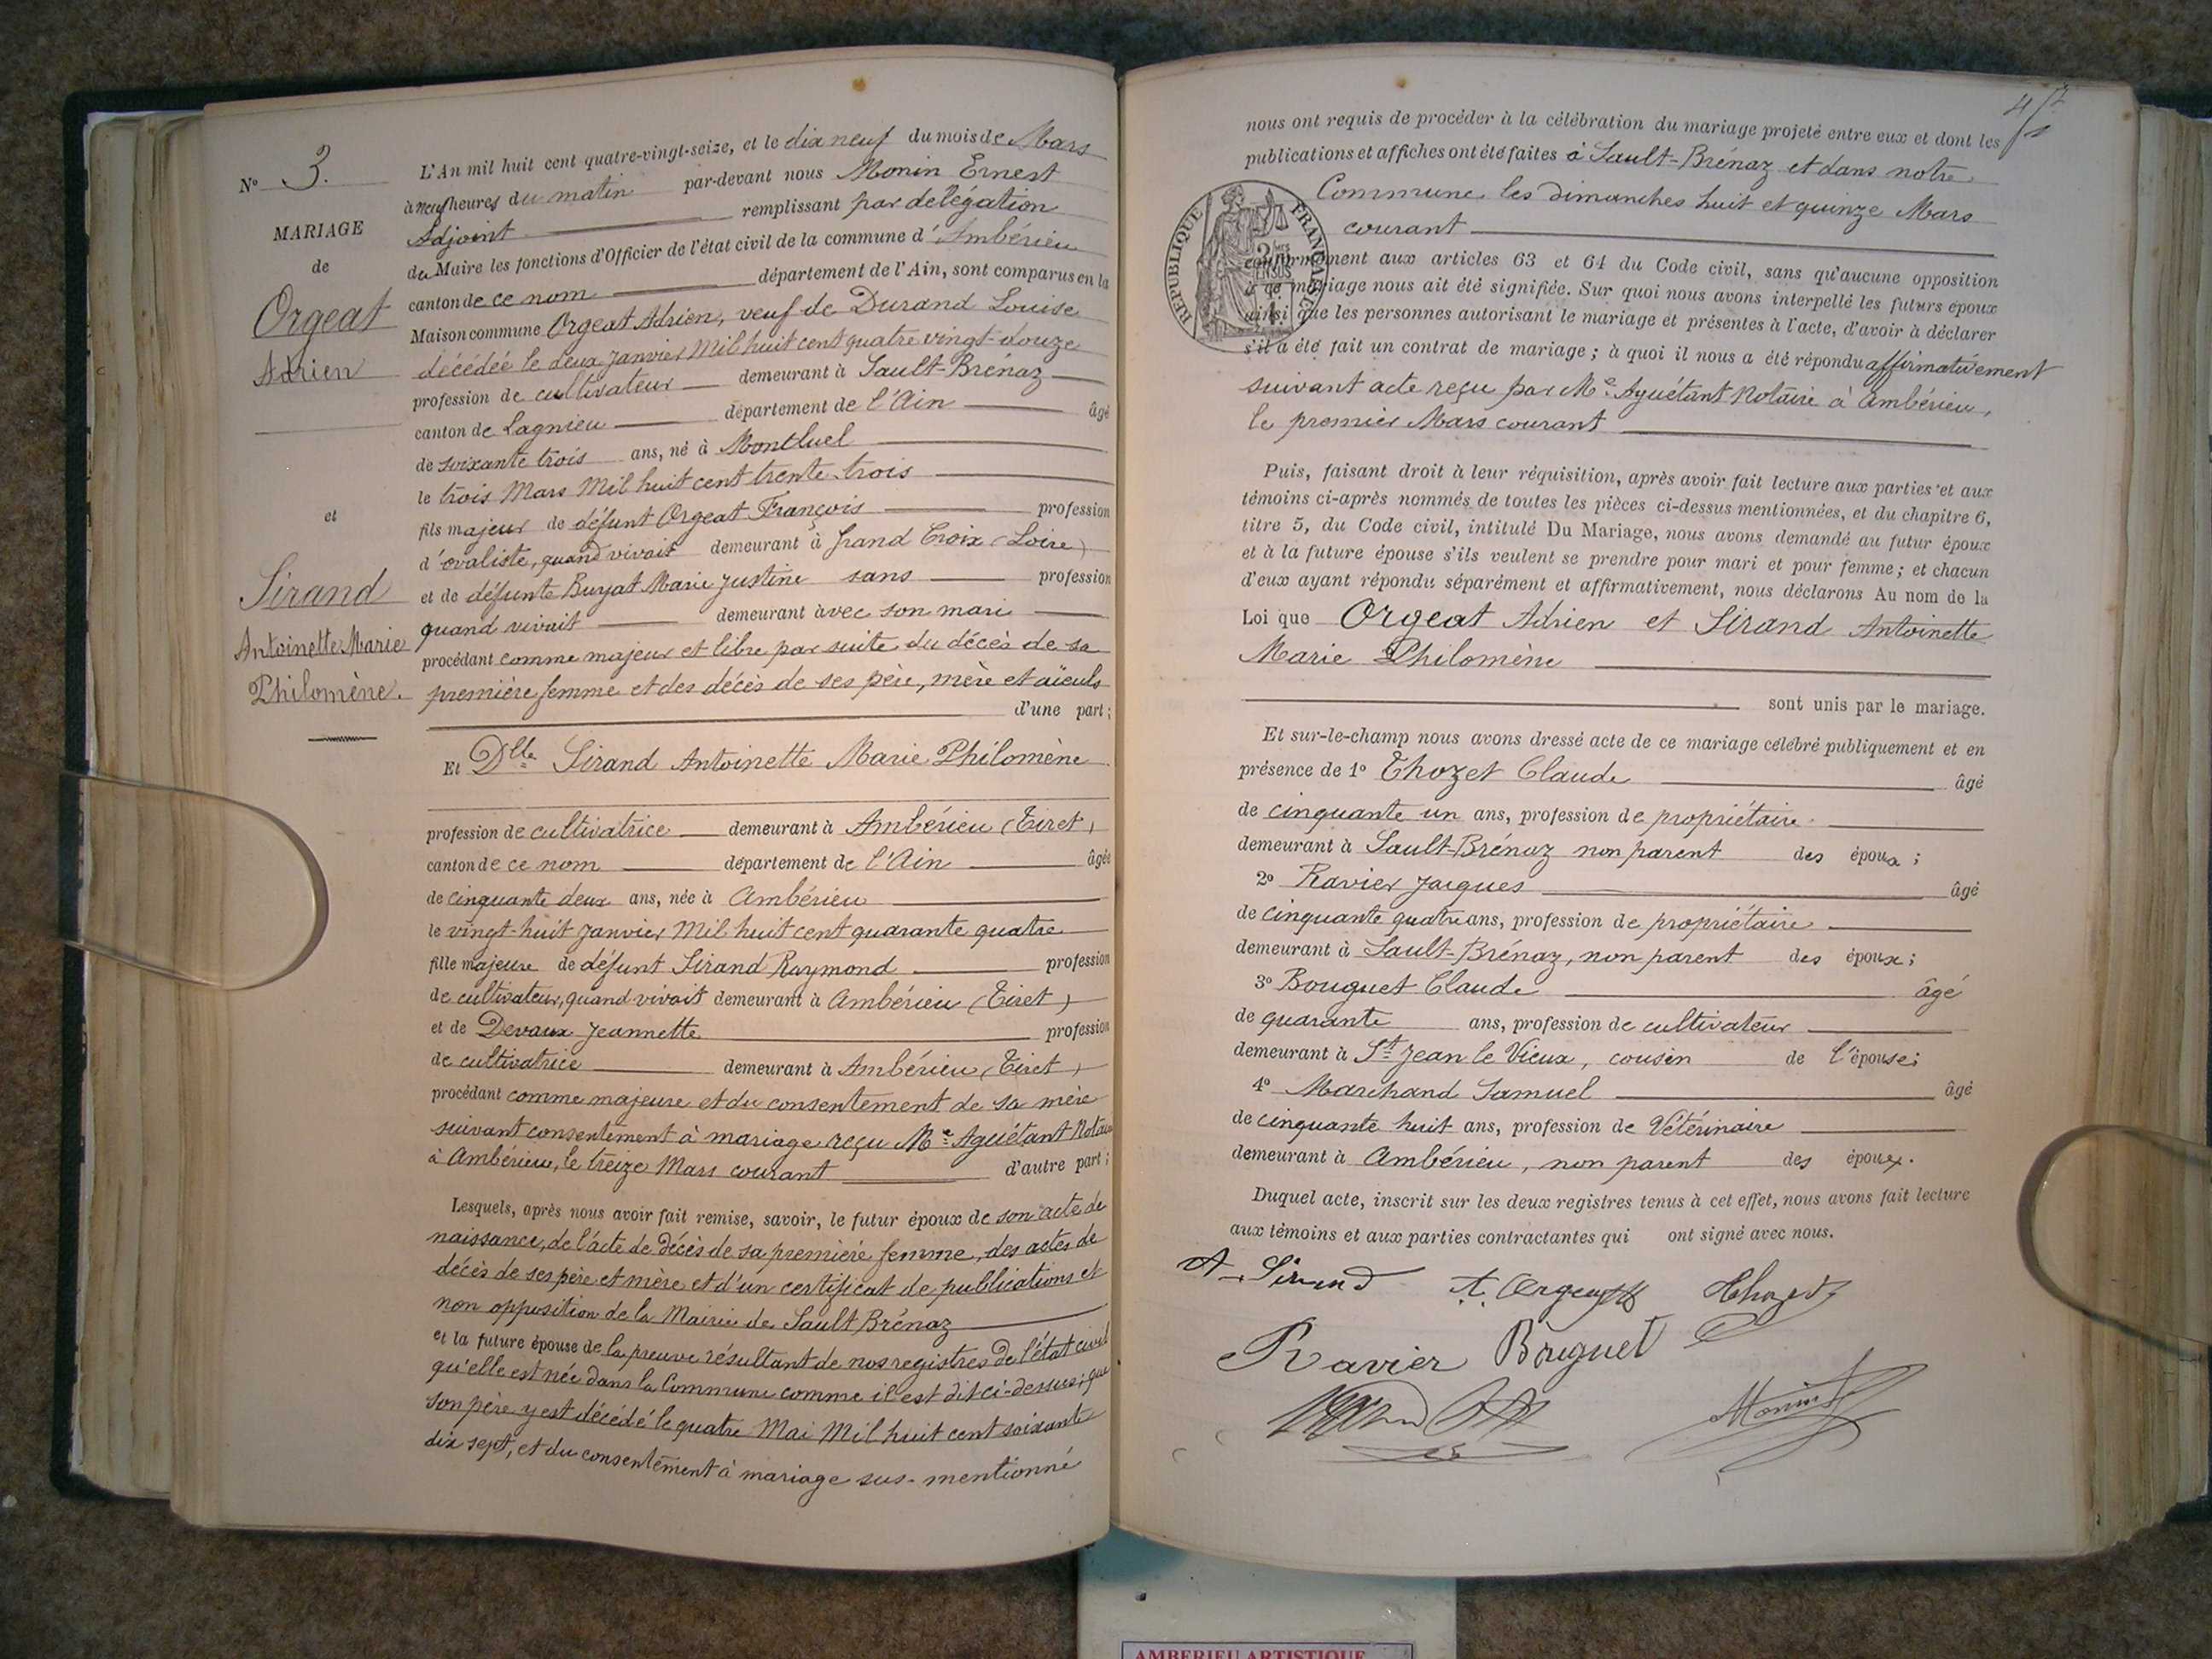 N° 3.
MARIAGE
de
Orgeat
Adrien
et
Sirand
Antoinette Marie
Philomène.
L'An mil huit cent quatre-vingt-seize, et le dix neuf du mois de Mars
à neuf heures du matin par-devant nous Monin Ernest
Adjoint remplissant par délégation
du Maire les fonctions d'Officier de l'état civil de la commune d'Ambérieu
canton de ce nom département de l'Ain, sont comparus en la
Maison commune Orgeat Adrien, veuf de Durand Louise
décédée le deux Janvier Mil huit cent quatre vingt-douze
profession de cultivateur demeurant à Sault-Brénaz
canton de Lagnieu département de l'Ain âgé
de soixante trois ans, né à Montluel
le trois Mars Mil huit cent trente-trois
fils majeur de défunt Orgeat François profession
d'ovaliste, quand vivait demeurant à Grand Croix (Loire)
et de défunte Buyat Marie Justine sans profession
quand vivait demeurant avec son mari
procédant comme majeur et libre par suite du décès de sa
première femme et des décès de ses père, mère et aïeuls
d'une part;
Et Dlle Sirand Antoinette Marie Philomène
profession de cultivatrice demeurant à Ambérieu (Tiret)
canton de ce nom département de l'Ain âgée
de cinquante deux ans, née à Ambérieu
le vingt-huit Janvier Mil huit cent quarante quatre
fille majeure de défunt Sirand Raymond profession
de cultivateur, quand vivait demeurant à Ambérieu (Tiret)
et de Devaux Jeannette profession
de cultivatrice demeurant à Ambérieu (Tiret)
procédant comme majeure et du consentement de sa mère
suivant consentement à mariage reçu Me Aguétant Notaire
à Ambérieu, le treize Mars courant d'autre part;
Lesquels, après nous avoir fait remise, savoir, le futur époux de son acte de
naissance, de l'acte de décès de sa première femme, des actes de
décès de ses père et mère et d'un certificat de publications et
non opposition de la Mairie de Sault Brénaz
et la future épouse de la preuve résultant de nos registres de l'état civil
qu'elle est née dans la Commune comme il est dit ci-dessus; que
son père y est décédé le quatre Mai Mil huit cent soixante
dix sept, et du consentement à mariage sus-mentionné
nous ont requis de procéder à la célébration du mariage projeté entre eux et dont les
publications et affiches ont été faites à Sault-Brénaz et dans notre
Commune, les dimanches huit et quinze Mars
courant
RÉPUBLIQUE FRANÇAISE
conformément aux articles 63 et 64 du Code civil, sans qu'aucune opposition
à ce mariage nous ait été signifiée. Sur quoi nous avons interpellé les futurs époux
ainsi que les personnes autorisant le mariage et présentes à l'acte, d'avoir à déclarer
s'il a été fait un contrat de mariage; à quoi il nous a été répondu affirmativement
suivant acte reçu par Me Aguétant Notaire à Ambérieu,
le premier Mars courant
Puis, faisant droit à leur réquisition, après avoir fait lecture aux parties et aux
témoins ci-après nommés de toutes les pièces ci-dessus mentionnées, et du chapitre 6,
titre 5, du Code civil, intitulé Du Mariage, nous avons demandé au futur époux
et à la future épouse s'ils veulent se prendre pour mari et pour femme; et chacun
d'eux ayant répondu séparément et affirmativement, nous déclarons Au nom de la
Loi que Orgeat Adrien et Sirand Antoinette
Marie Philomène
sont unis par le mariage.
Et sur-le-champ nous avons dressé acte de ce mariage célébré publiquement et en
présence de 1° Thozet Claude âgé
de cinquante un ans, profession de propriétaire
demeurant à Sault-Brénaz non parent des époux;
2° Ravier Jacques âgé
de cinquante quatre ans, profession de propriétaire
demeurant à Sault-Brénaz, non parent des époux;
3° Bouguet Claude âgé
de quarante ans, profession de cultivateur
demeurant à St Jean le Vieux, cousin de l'épouse;
4° Marchand Samuel âgé
de cinquante huit ans, profession de Vétérinaire
demeurant à Ambérieu, non parent des époux.
Duquel acte, inscrit sur les deux registres tenus à cet effet, nous avons fait lecture
aux témoins et aux parties contractantes qui ont signé avec nous.
A. Sirand A. Orgeat Thozet
Ravier Bouguet
Monin
AMBERIEU ARTISTIQUE